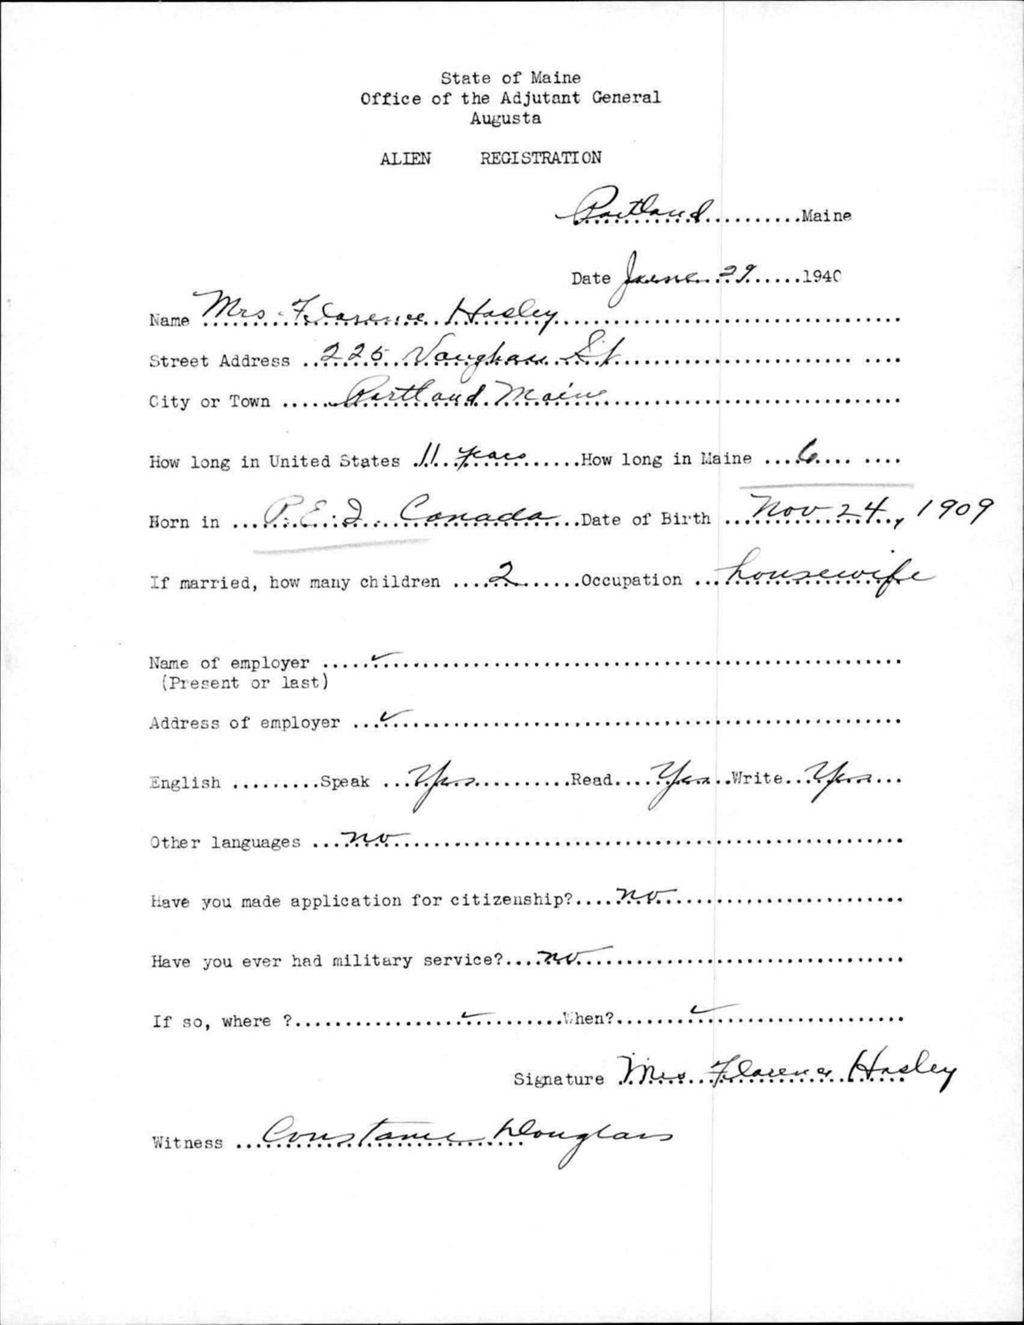 State of Maine
Office of the Adjutant General
Augusta
ALIEN REGISTRATION
Portland..........Maine
Date June 29......1940
Name Mrs. Florence Hasley
Street Address 225 Vaughan St.
City or Town Portland Maine
How long in United States 11 years How long in Maine 6
Born in P.E.I. Canada Date of Birth Nov 24, 1909
If married, how many children 2 Occupation housewife
Name of employer ✓
(Present or last)
Address of employer ✓
English Speak Yes Read Yes Write Yes
Other languages no
Have you made application for citizenship? no
Have you ever had military service? no
If so, where ? ✓ When? ✓
Signature Mrs. Florence Hasley
Witness Constance Douglass